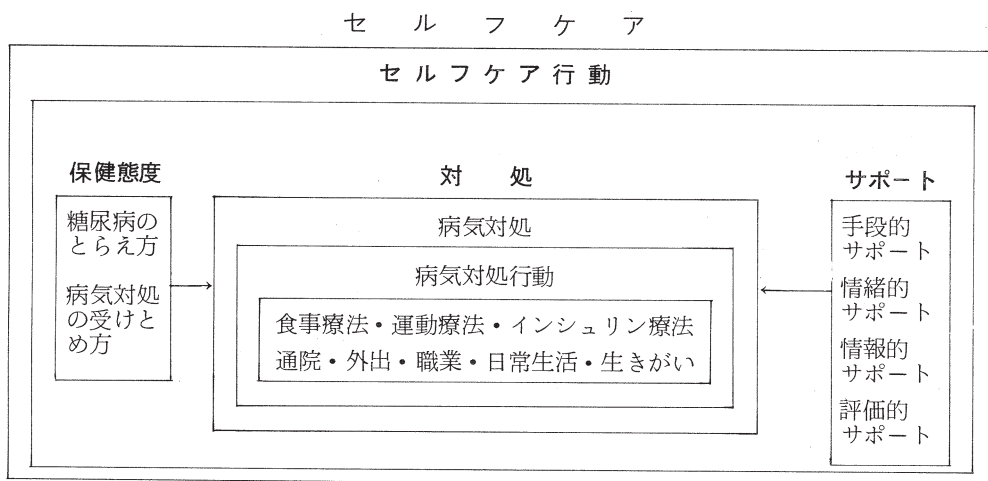 セルフケア
セルフケア行動
保健態度
糖尿病の
とらえ方
病気対処
の受けと
め方
対処
病気対処
病気対処行動
食事療法・運動療法・インシュリン療法
通院・外出・職業・日常生活・生きがい
サポート
手段的
サポート
情緒的
サポート
情報的
サポート
評価的
サポート